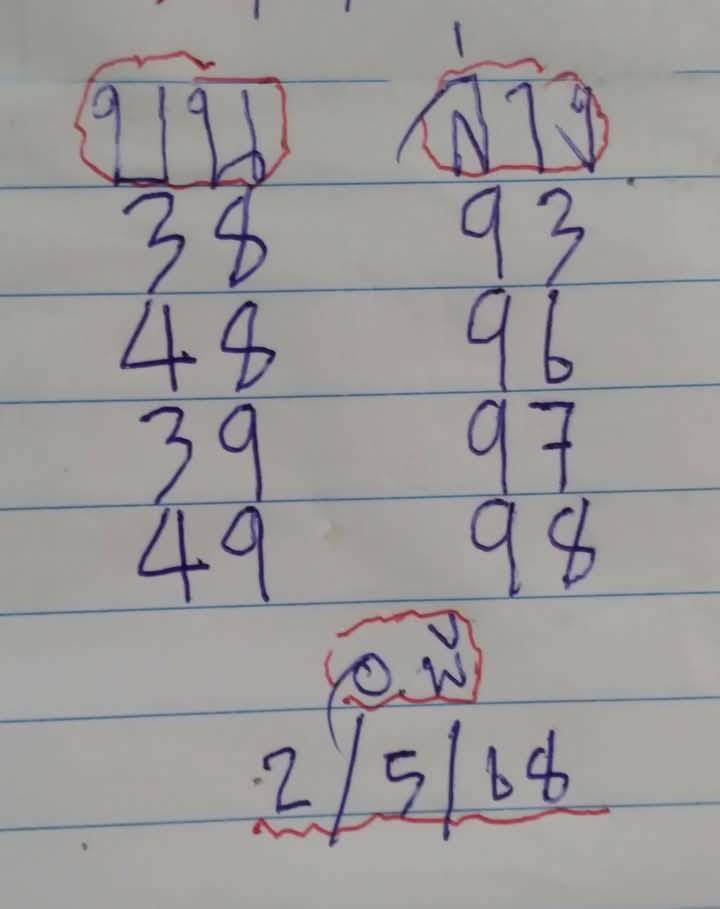 บน ล่าง
38 93
48 96
39 97
49 98
2/5/68